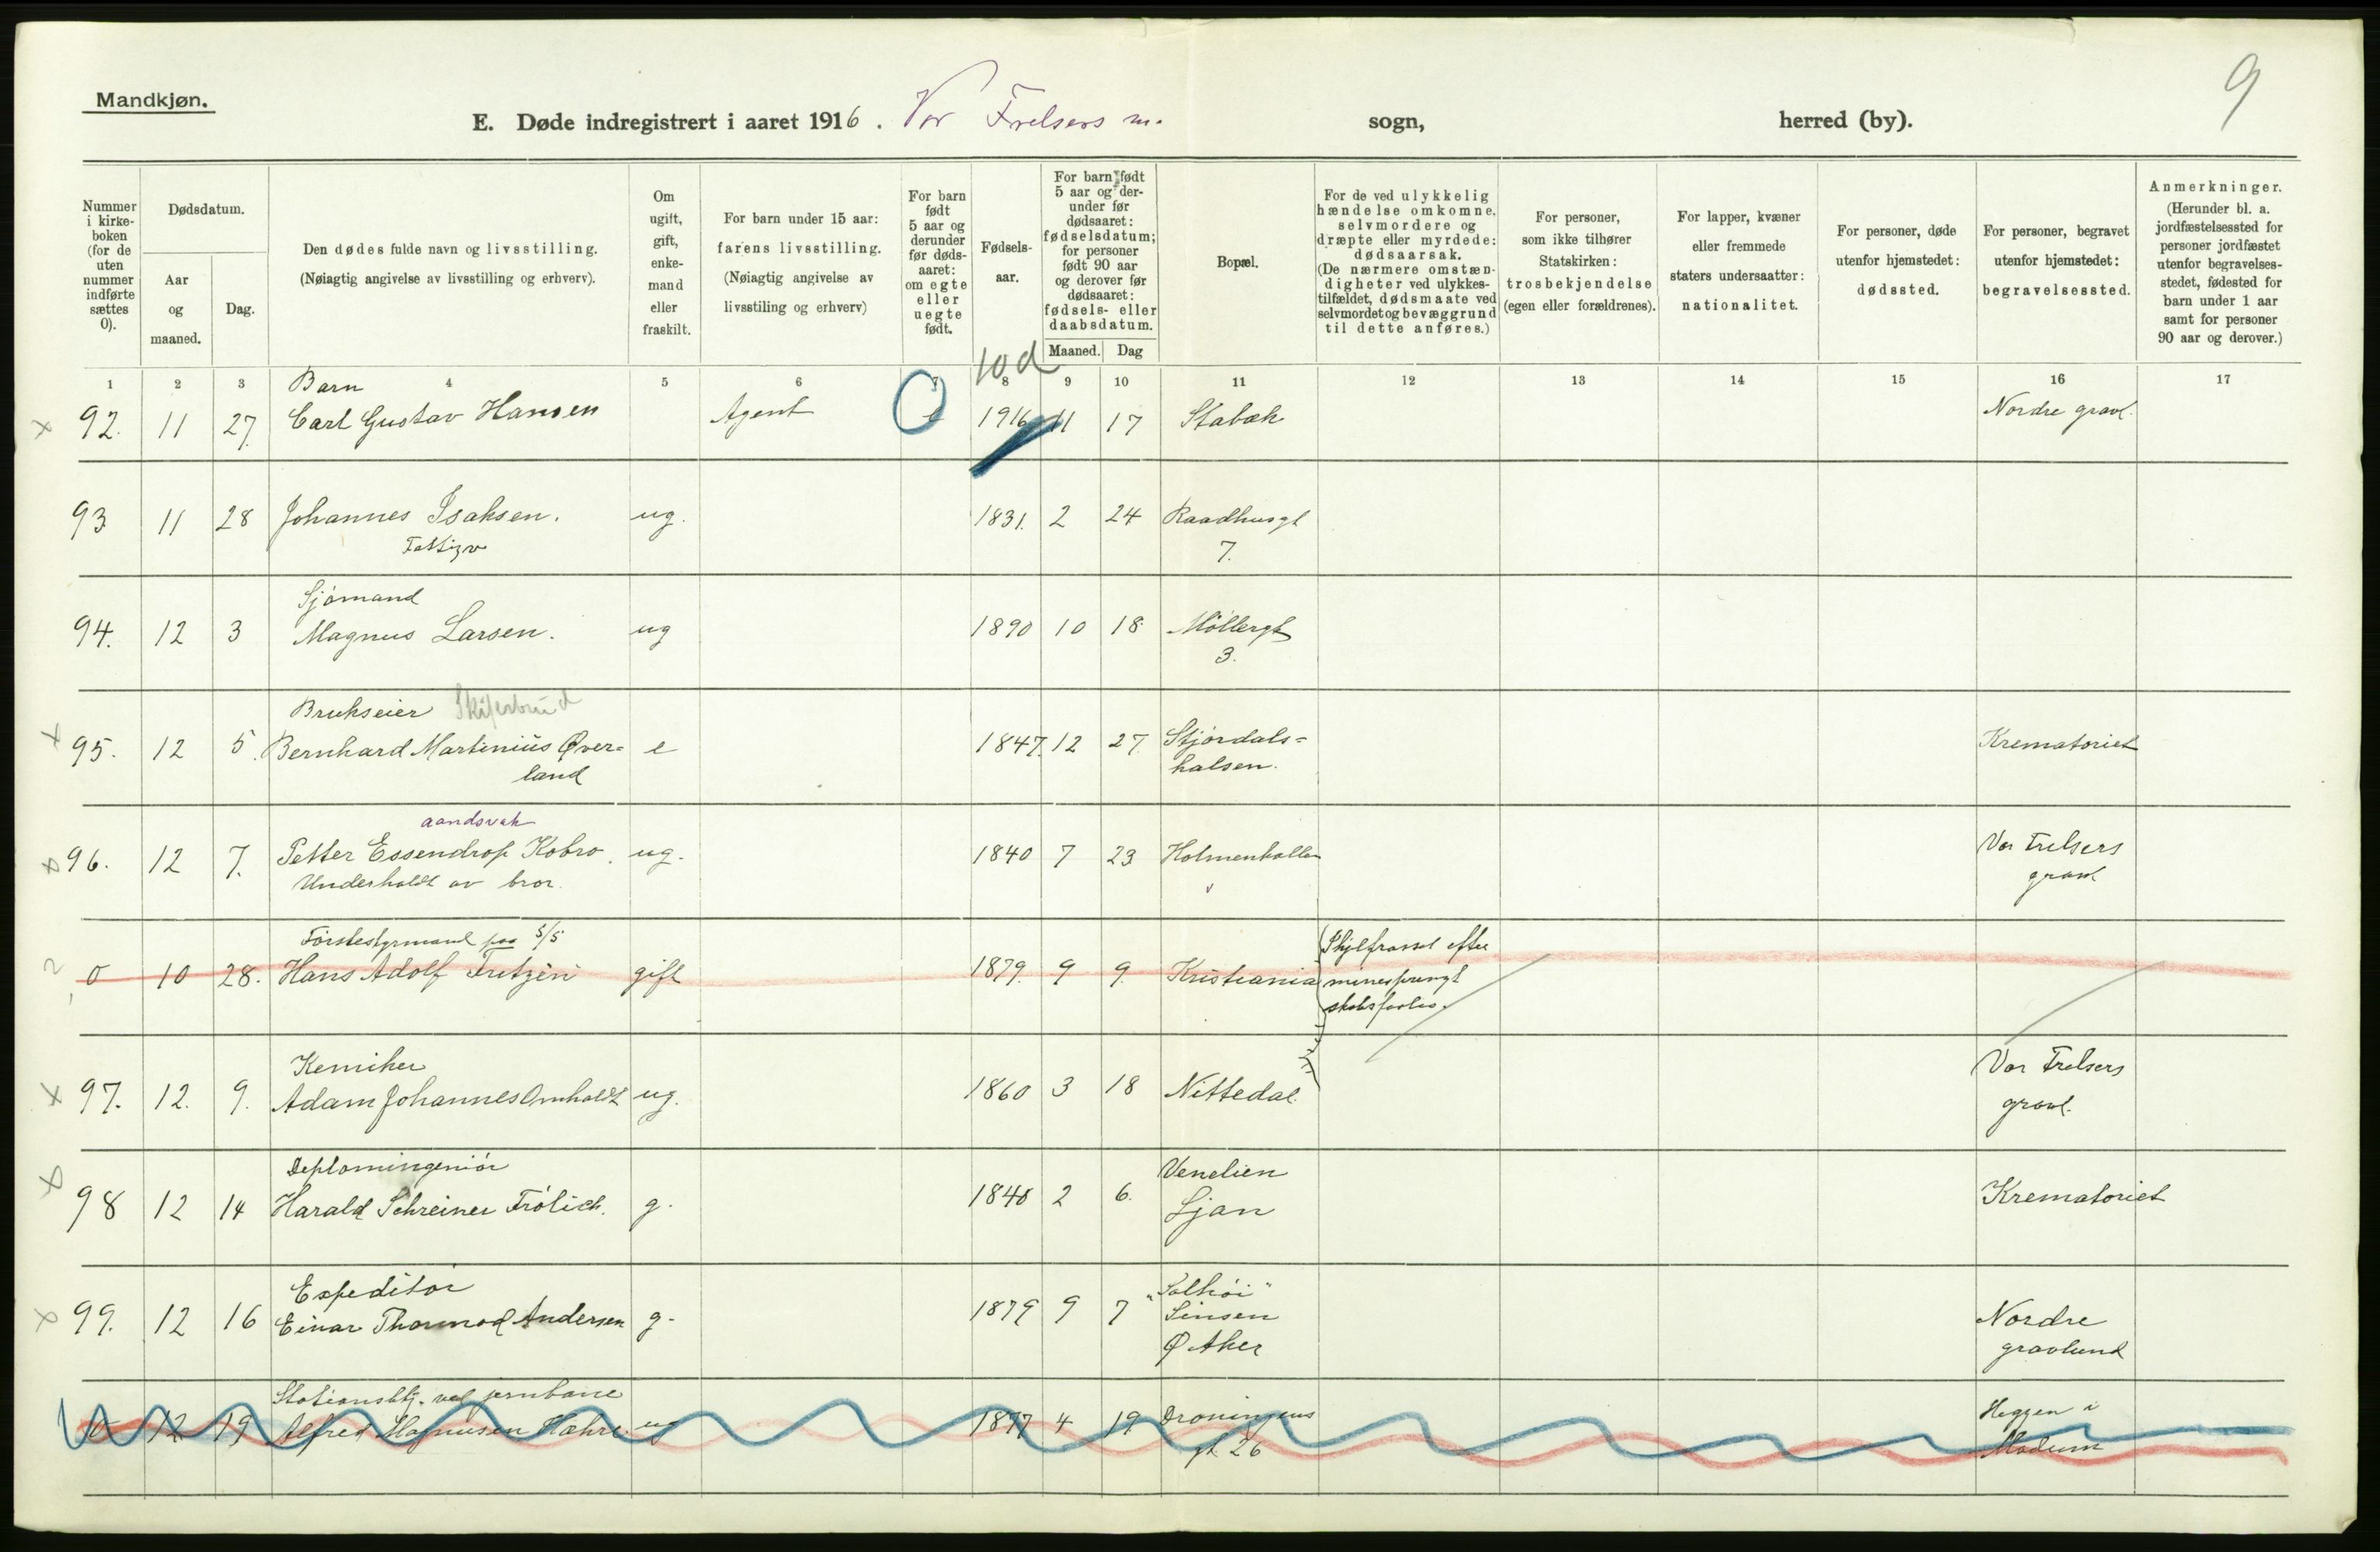 9
Mandkjøn.
E. Døde indregistrert i aaret 1916. Vor Frelsers m. sogn, herred (by).
Nummer i kirke-boken (for de uten nummer indførte sættes 0).
Dødsdatum.
Aar og maaned.
Dag.
Den dødes fulde navn og livsstilling.
(Nøiagtig angivelse av livsstilling og erhverv).
Om ugift, gift, enkemand eller fraskilt.
For barn under 15 aar: farens livsstilling.
(Nøiagtig angivelse av livsstiling og erhverv)
For barn født 5 aar og derunder før døds-aaret: om egte eller uegte født.
Fødsels-aar.
For barn født 5 aar og der-under før dødsaaret: fødselsdatum; for personer født 90 aar og derover før dødsaaret: fødsels- eller daabsdatum.
Maaned. Dag
Bopæl.
For de ved ulykkelig hændelse omkomne, selvmordere og dræpte eller myrdede: dødsaarsak.
(De nærmere omstæn-digheter ved ulykkes-tilfældet, dødsmaate ved selvmordet og bevæggrund til dette anføres.)
For personer, som ikke tilhører Statskirken: trosbekjendelse (egen eller forældrenes).
For lapper, kvæner eller fremmede staters undersaatter: nationalitet.
For personer, døde utenfor hjemstedet: dødssted.
For personer, begravet utenfor hjemstedet: begravelsessted.
Anmerkninger.
(Herunder bl. a. jordfæstelsessted for personer jordfæstet utenfor begravelses-stedet, fødested for barn under 1 aar samt for personer 90 aar og derover.)
1 2 3 4 5 6 7 8 9 10 11 12 13 14 15 16 17
10 d
Barn
x 92. 11 27. Carl Gustav Hansen Agent e 1916 11 17 Stabæk Nordre gravl.
93 11 28 Johannes Isaksen. ug. 1831. 2 24 Raadhusgt
Fattigv 7.
Sjømand
94. 12 3 Magnus Larsen. ug 1890 10 18 Møllergt
3.
Brukseier
x 95. 12 5. Bernhard Martinius Øver= e 1847. 12 27. Stjørdals= Krematoriet
land halsen.
aandsvak
x 96. 12 7. Petter Essendrop Kobro. ug. 1840 7 23 Holmenkollen Vor Frelsers
Underholdt av bror. gravl
Førstestyrmand paa S/S
0 10 28. Hans Adolf Fretzen gift 1879. 9 9. Kristiania
minesprengt
Kemiker
x 97. 12. 9. Adam Johannes Omholdt ug. 1860 3 18 Nittedal. Vor Frelsers
gravl.
Deplomingeniør
x 98 12 14 Harald Schreiner Frølich. g. 1840 2 6. Venelien Krematoriet
Ljan
Expeditør
x 99. 12 16 Einar Thormod Andersen g. 1879 9 7 "Solhøi"
Sinsen Nordre
Ø Aker gravlund
Stationsbtj. ved jernbane
0 12 19 Alfred Magnusen ug 1877 4 19 Dronningens Heggen i
gt 26 Modum